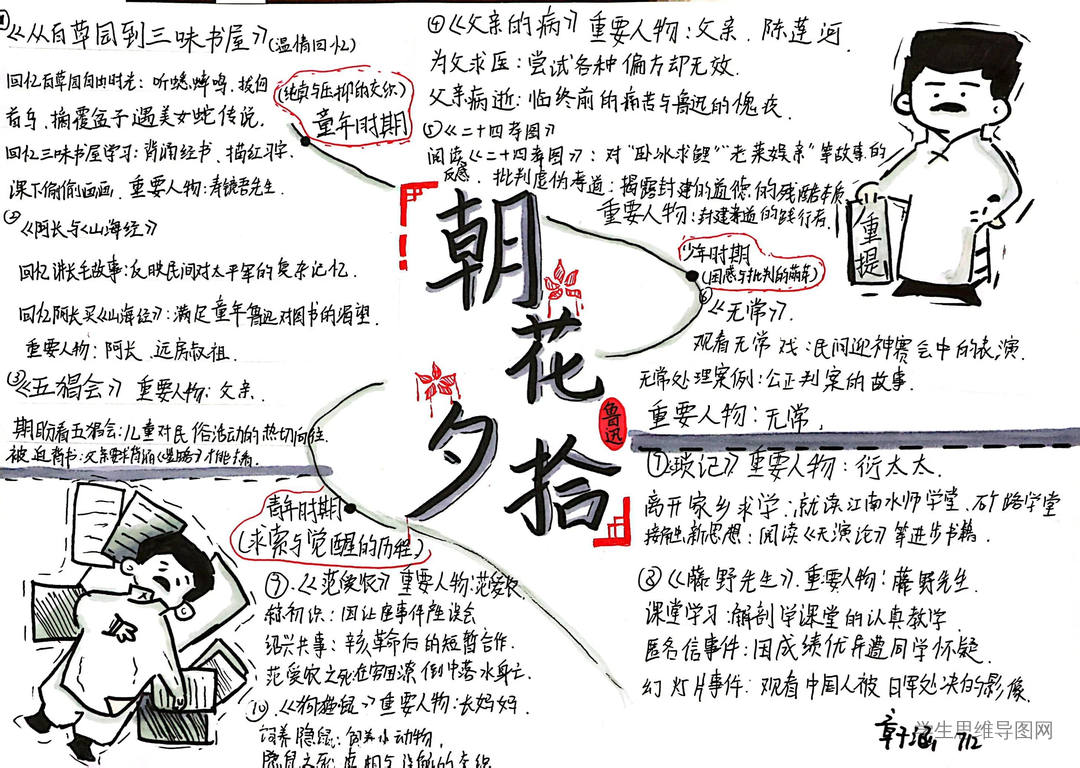 《从百草园到三味书屋》(温情回忆)
回忆百草园自由时光：听蟋蟀鸣，拔何
首乌，摘覆盆子遇美女蛇传说．
回忆三味书屋学习：背诵经书，描红习字．
课下偷偷画画．重要人物：寿镜吾先生．
(纯真与压抑的交织)
童年时期
②
《阿长与《山海经》
回忆讲长毛故事：反映民间对太平军的复杂记忆．
回忆阿长买《山海经》：满足童年鲁迅对图书的渴望．
重要人物：阿长、远房叔祖．
③《五猖会》重要人物：父亲．
期盼看五猖会：儿童对民俗活动的热切向往．
被迫背书：父亲要求背诵《鉴略》才能去看．
④《父亲的病》重要人物：父亲．陈莲河．
为父求医：尝试各种偏方却无效．
父亲病逝：临终前的痛苦与鲁迅的愧疚
⑤《二十四孝图》
阅读《二十四孝图》：对“卧冰求鲤”“老莱娱亲”等故事的
反感．批判虚伪孝道：揭露封建的道德的残酷本质
重要人物：封建孝道的践行者．
重提
少年时期
(困惑与批判的萌芽)
⑥
《无常》．
观看无常戏：民间迎神赛会中的表演．
无常处理案例：公正判案的故事．
重要人物：无常．
朝花夕拾
鲁迅
⑦《琐记》重要人物：衍太太．
离开家乡求学：就读江南水师学堂、矿路学堂
接触新思想：阅读《天演论》等进步书籍．
⑧《藤野先生》．重要人物：藤野先生．
课堂学习：解剖学课堂的认真教学．
匿名信事件：因成绩优异遭同学怀疑．
幻灯片事件：观看中国人被日军处决的影像．
青年时期
(求索与觉醒的历程)
⑨．《范爱农》重要人物：范爱农．
初识：因让座事件产生误会
绍兴共事：辛亥革命后的短暂合作．
范爱农之死：在穷困潦倒中落水身亡．
⑩．《狗猫鼠》重要人物：长妈妈．
饲养隐鼠：饲养小动物．
隐鼠之死：真相与误解的交织
章子涵 7/2
学生思维导图网